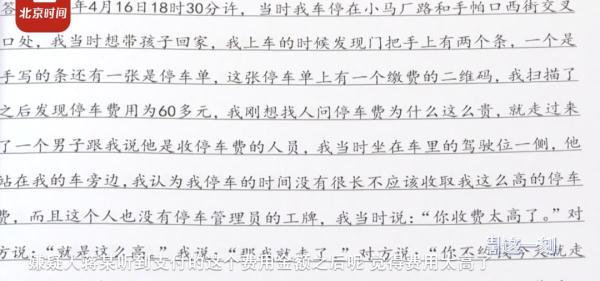 北京时间
答 年4月16日18时30分许，当时我车停在小马厂路和手帕口西街交叉
口处，我当时想带孩子回家，我上车的时候发现门把手上有两个条，一个是
手写的条还有一张是停车单，这张停车单上有一个缴费的二维码，我扫描了
之后发现停车费用为60多元，我刚想找人问停车费为什么这么贵，就走过来
了一个男子跟我说他是收停车费的人员，我当时坐在车里的驾驶位一侧，他
站在我的车旁边，我认为我停车的时间没有很长不应该收取我这么高的停车
费，而且这个人也没有停车管理员的工牌，我当时说：“你收费太高了。”对
方说：“就是这么高。”我说：“那我就走了。”对方说：“你不
就走
嫌疑人蒋某听到支付的这个费用金额之后呢 觉得费用太高了